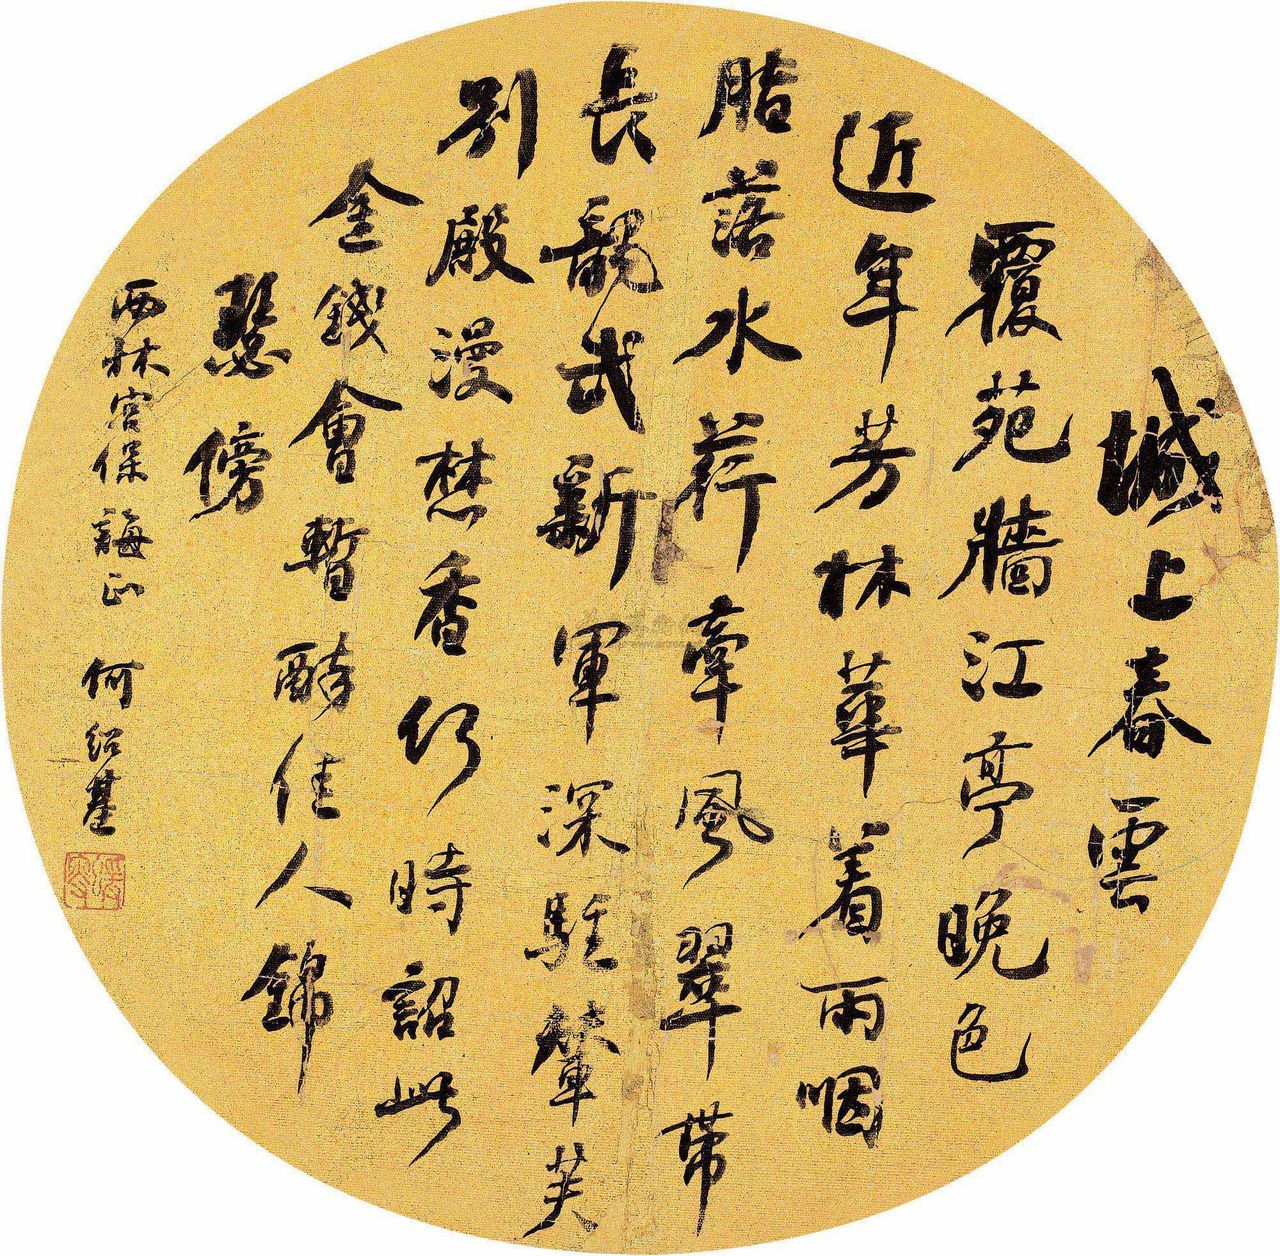 城上春雲
覆苑牆江亭晚色
近年芳林華着雨咽
脂落水荇牽風翠帶
長龍武新軍深駐輦芙
別殿漫焚香何時詔此
金錢會暫醉佳人錦
瑟傍
西林宮保誨正 何紹基